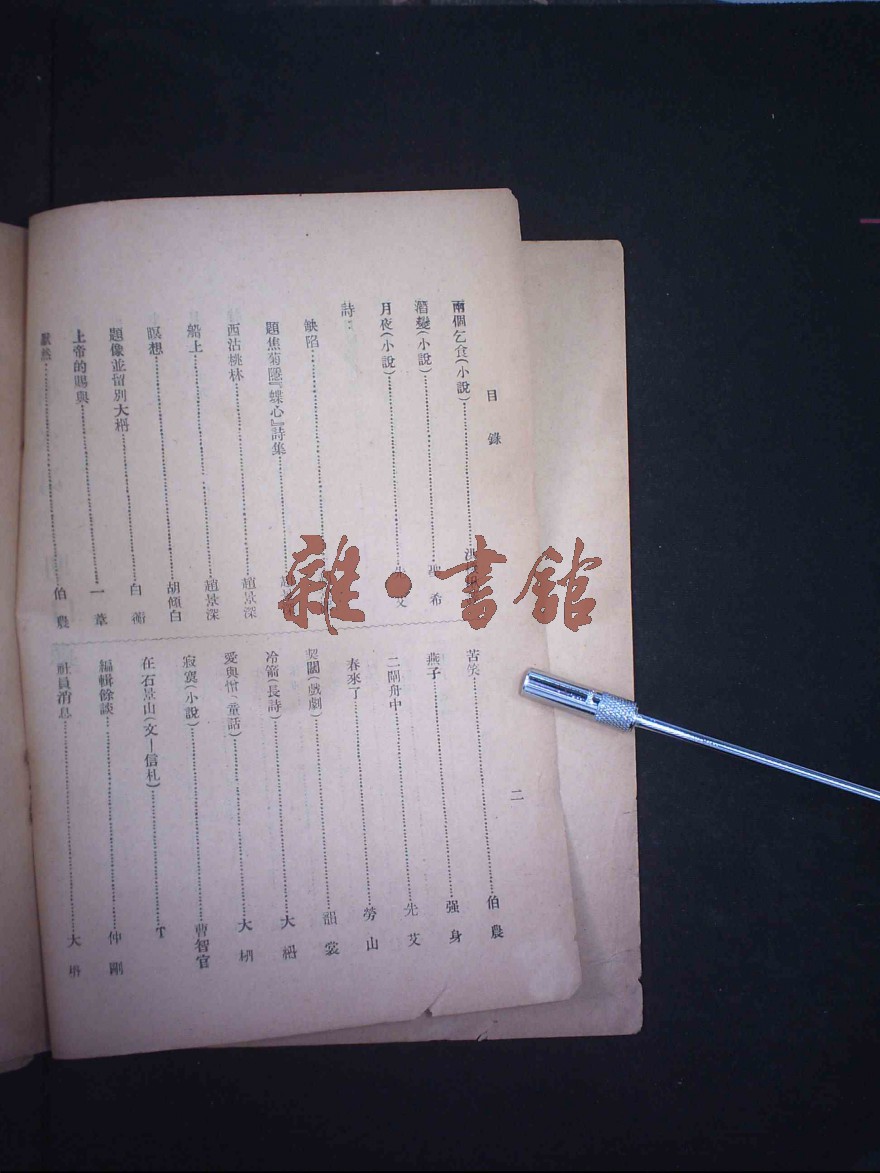 目錄
兩個乞食(小說)
潛變(小說)……聖希
月夜(小說)……艾
詩:
缺陷
題焦菊隱『蝶心』詩集……趙景深
西沽桃林……趙景深
船上……趙景深
瞑想……胡傾白
題像並留別大枬……白蘅
上帝的賜與……一葦
默然……伯農
二
苦笑……伯農
燕子……强身
二閘舟中……先艾
春來了……勞山
契闊(戲劇)……韶裳
冷箭(長詩)……大枬
愛與憎(童話)……大枬
寂寞(小說)……曹智官
在石景山(文—信札)……T
編輯餘談……仲剛
社員消息……大枬
雜·書館